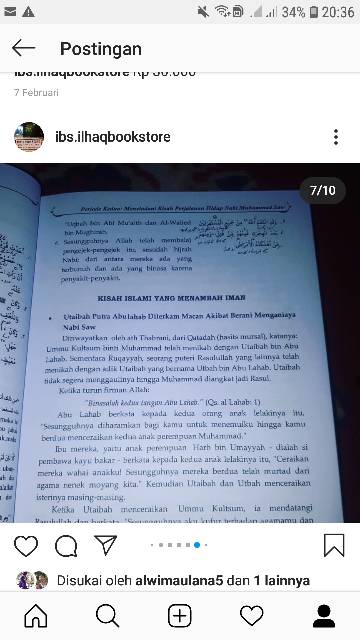 34% 20:36
Postingan
ibs.ilhaqbookstore Rp 50.000
7 Februari
ibs.ilhaqbookstore
7/10
Periode Kedua: Menyelami Kisah Perjalanan Hidup Nabi Muhammad Saw
'Uqbah bin Abi Mu'aith dan Al-Walied
bin Mughirah.
c. Sesungguhnya Allah telah membalas
pengejek-pengejek itu, sesudah hijrah
Nabi; dari antara mereka ada yang
terbunuh dan ada yang binasa karena
penyakit-penyakit.
KISAH ISLAMI YANG MENAMBAH IMAN
• Utaibah Putra Abu Lahab Diterkam Macan Akibat Berani Menganiaya
Nabi Saw
Diriwayatkan oleh ath Thabrani, dari Qatadah (hadits mursal), katanya:
Ummu Kultsum binti Muhammad telah menikah dengan Utaibah bin Abu
Lahab. Sementara Ruqayyah, seorang puteri Rasulullah yang lainnya telah
menikah dengan adik Utaibah yang bernama Utbah bin Abu Lahab. Utaibah
tidak segera menggaulinya hingga Muhammad diangkat jadi Rasul.
Ketika turun firman Allah:
"Binasalah kedua tangan Abu Lahab." (Qs. al Lahab: 1)
Abu Lahab berkata kepada kedua orang anak lelakinya itu,
"Sesungguhnya diharamkan bagi kamu untuk menemuiku hingga kamu
berdua menceraikan kedua anak perempuan Muhammad."
Ibu mereka, yaitu anak perempuan Harb bin Umayyah - dialah si
pembawa kayu bakar - berkata kepada kedua anak lelakinya itu, "Ceraikan
mereka wahai anakku! Sesungguhnya mereka berdua telah murtad dari
agama nenek moyang kita." Kemudian Utaibah dan Utbah menceraikan
isterinya masing-masing.
Ketika Utaibah menceraikan Ummu Kultsum, ia mendatangi
Rasulullah dan berkata, "Sesungguhnya aku kufur terhadap agamamu dan
Disukai oleh alwimaulana5 dan 1 lainnya